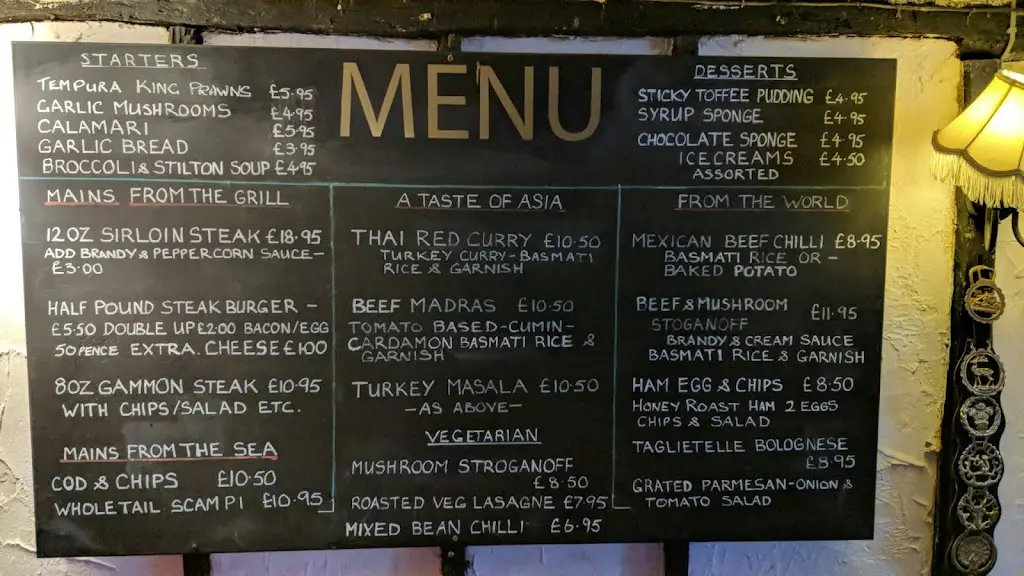 MENU
STARTERS
TEMPURA KING PRAWNS £5.95
GARLIC MUSHROOMS £4.95
CALAMARI £5.95
GARLIC BREAD £3.95
BROCCOLI & STILTON SOUP £4.95
DESSERTS
STICKY TOFFEE PUDDING £4.95
SYRUP SPONGE £4.95
CHOCOLATE SPONGE £4.95
ICE CREAMS £4.50
ASSORTED
MAINS FROM THE GRILL
12OZ SIRLOIN STEAK £18.95
ADD BRANDY & PEPPERCORN SAUCE -
£3.00
HALF POUND STEAK BURGER -
£5.50 DOUBLE UP £2.00 BACON/EGG
50 PENCE EXTRA. CHEESE £1.00
8OZ GAMMON STEAK £10.95
WITH CHIPS/SALAD ETC.
MAINS FROM THE SEA
COD & CHIPS £10.50
WHOLETAIL SCAMPI £10.95
A TASTE OF ASIA
THAI RED CURRY £10.50
TURKEY CURRY - BASMATI
RICE & GARNISH
BEEF MADRAS £10.50
TOMATO BASED - CUMIN -
CARDAMON BASMATI RICE &
GARNISH
TURKEY MASALA £10.50
- AS ABOVE -
VEGETARIAN
MUSHROOM STROGANOFF
£8.50
ROASTED VEG LASAGNE £7.95
MIXED BEAN CHILLI £6.95
FROM THE WORLD
MEXICAN BEEF CHILLI £8.95
BASMATI RICE OR -
BAKED POTATO
BEEF & MUSHROOM £11.95
STOGANOFF
BRANDY & CREAM SAUCE
BASMATI RICE & GARNISH
HAM EGG & CHIPS £8.50
HONEY ROAST HAM 2 EGGS
CHIPS & SALAD
TAGLIETELLE BOLOGNESE
£8.95
GRATED PARMESAN - ONION &
TOMATO SALAD